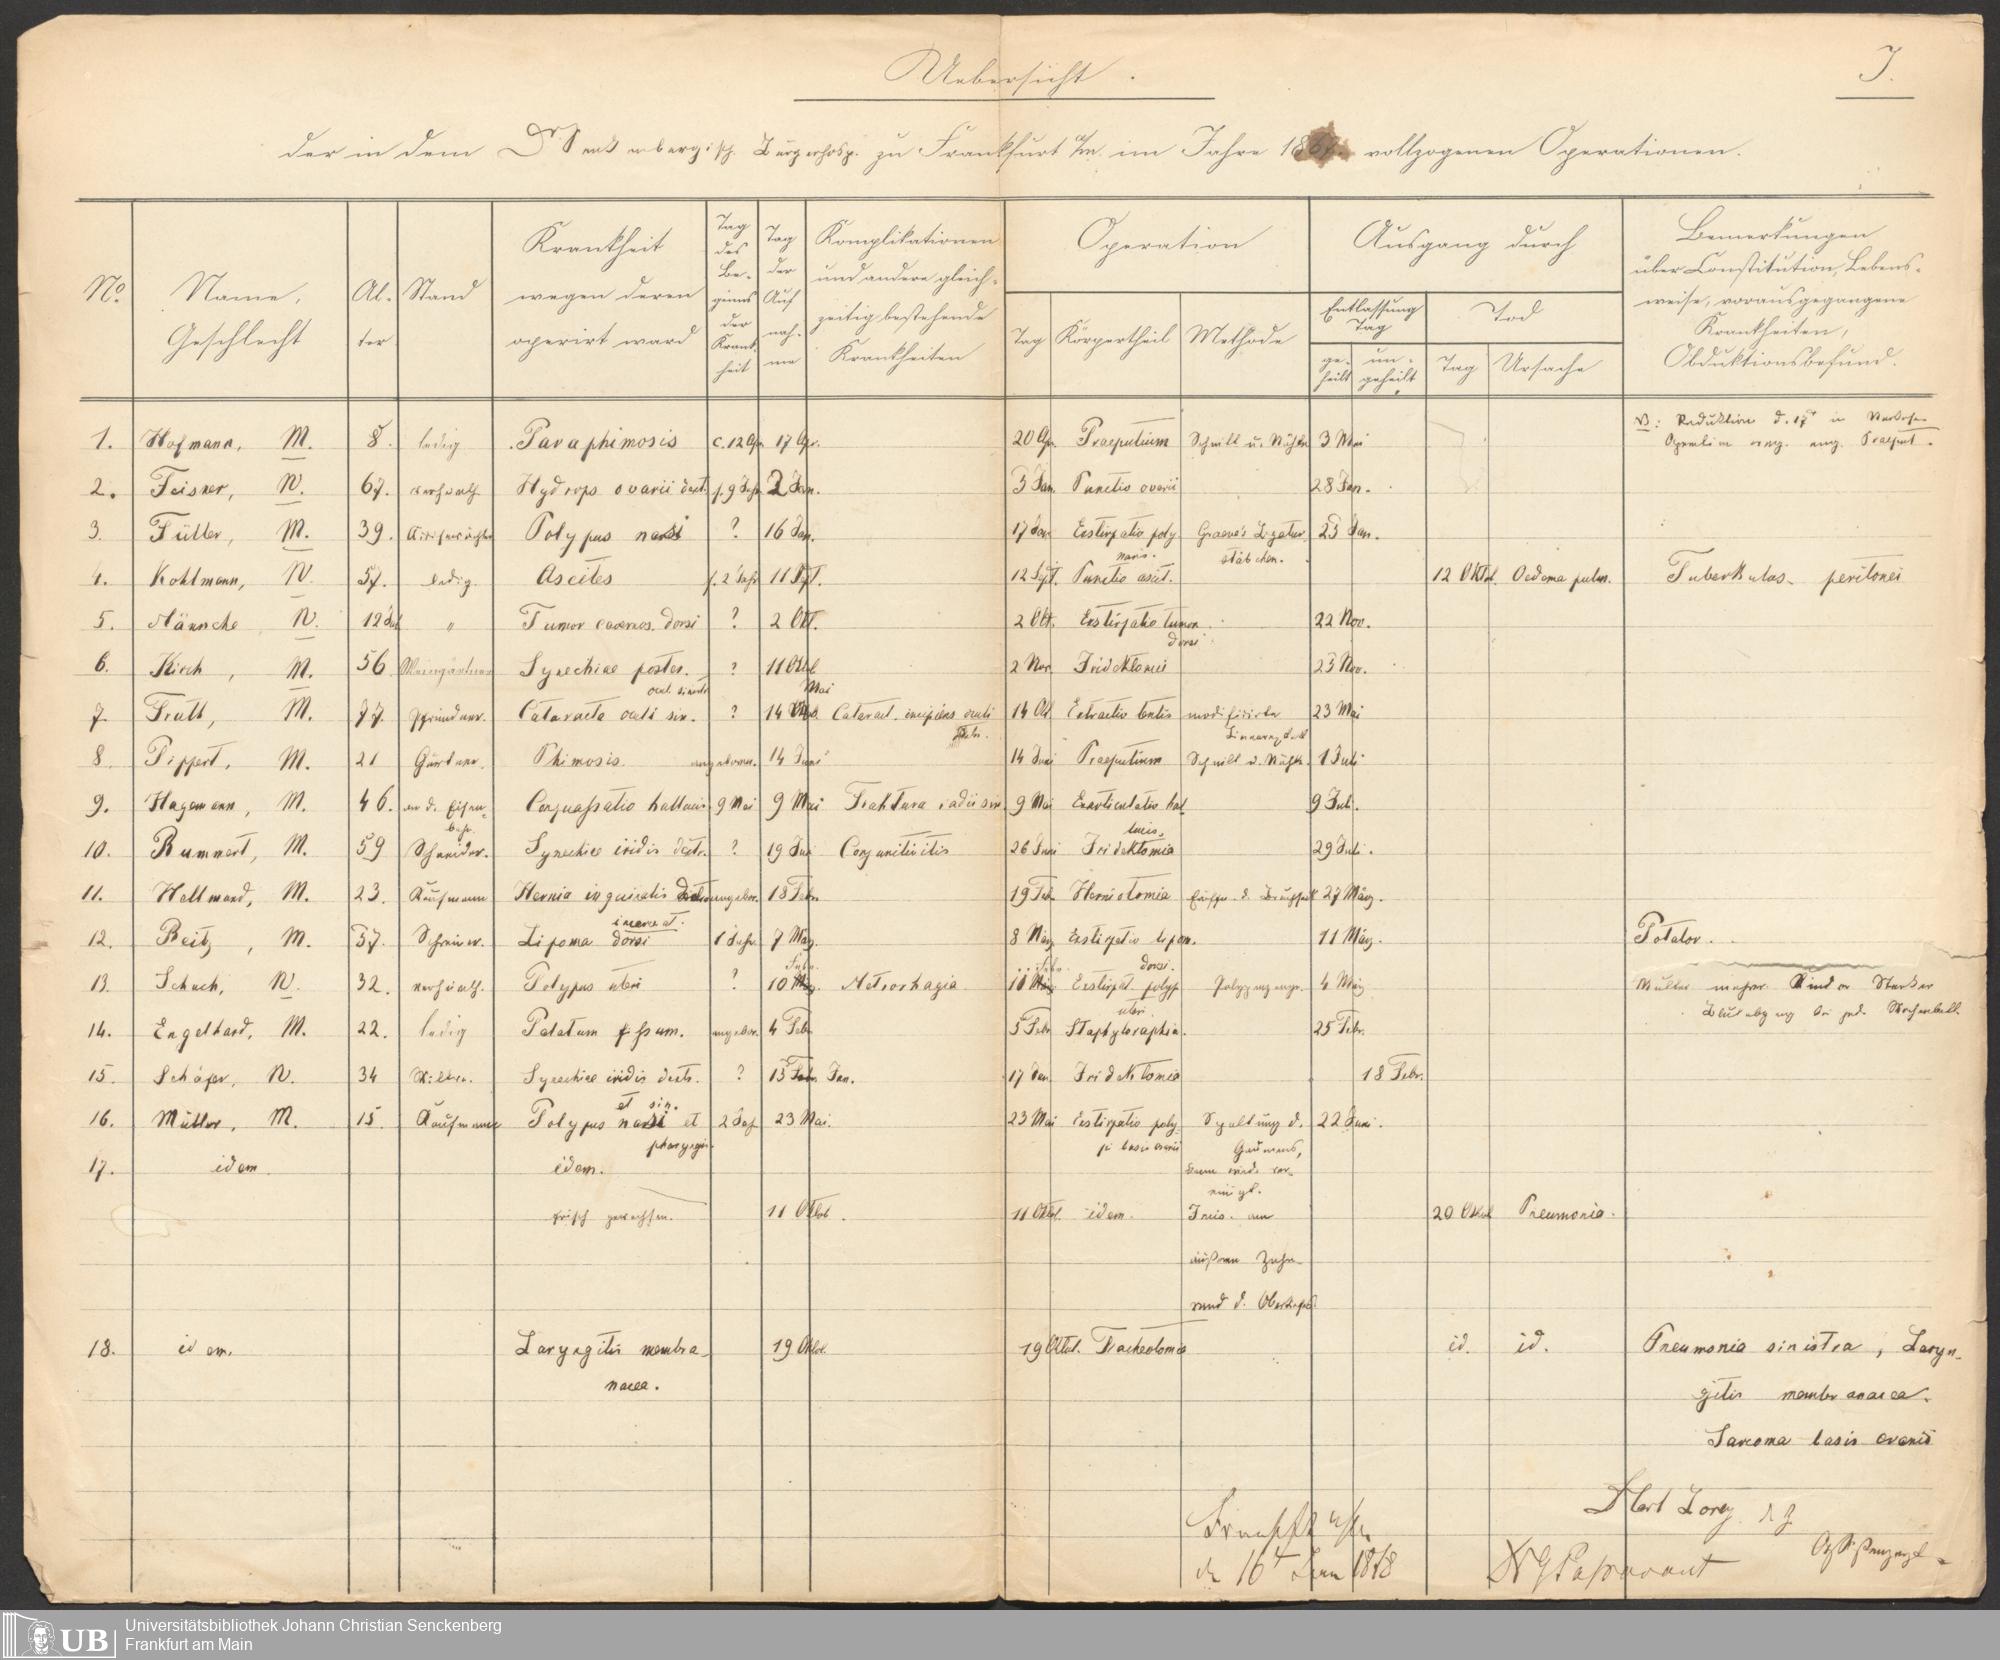 Uebersicht.
I.
der in dem Dr Senkenbergisch. Bürgerhosp. zu Frankfurt a/m. im Jahre 1867. vollzogenen Operationen.
No.
Name, Geschlecht
Alter
Stand
Krankheit wegen deren operirt ward
Tag des Beginns der Krankheit
Tag der Aufnahme
Komplikationen und andere gleichzeitig bestehende Krankheiten
Operation
Tag Körpertheil Methode
Ausgang durch
Entlassung Tag
geheilt ungeheilt
Tod
Tag Ursache
Bemerkungen über Constitution, Lebensweise, vorausgegangene Krankheiten, Obduktionsbefund.
1. Hofmann, M. 8. ledig Paraphimosis c. 12 Apr. 17 Apr. 20 Apr. Praeputium Schnitt u. Nähte 3 Mai
2. Feisner, W. 67. Hydrops ovarii dext. 2 Jan. 3 Jan. Punctio ovarii 28 Jan.
3. Füller, M. 39. Polypus nasi ? 16 Jan. 17 Jan. Exstirpatio polyp. naris. 23 Jan.
4. Kohlmann, W. 57. ledig. Ascites 11 Spt. 12 Spt. Punctio ascit. 12 Oktob. Oedema pulm. Tuberkulos. peritonei
5. Männche W. 12 " Tumor cavernos. dorsi ? 2 Okt. 2 Okt. Exstirpatio tumor. dorsi 22 Nov.
6. Kirch, M. 56 Synechiae poster. ocul. sinistr. ? 11 Oktob 2 Nov. Iridektomie 23 Nov.
7. M. 77. Pfründner. Cataracta oculi sin. ? 14 Mai Cataract. incipiens oculi dextr. 14 Extractio lentis modifizirte 23 Mai
8. Pippert, M. 21 Gärtner. Phimosis. angeboren. 14 Juni 14 Juni Praeputium Schnitt u. Nähte 1 Juli
9. Hagemann, M. 46. an d. Eisenbahn. Conquassatio hallucis 9 Mai 9 Mai Fraktura radii sin. 9 Mai Exarticulatio hallucis. 9 Juli.
10. Rummert, M. 59 Schneider. Synechiae iridis dextr. ? 19 Jun Conjunctivitis 26 Juni Iridektomia 29 Juli.
11. Hellmund, M. 23. Kaufmann Hernia inguinalis incarcerat. angebor. 18 Febr. 19 Feb. Herniotomia 27 März.
12. Reitz, M. 37. Schreiner. Lipoma dorsi 1 Jahr 7 März. 8 März Exstirpatio lipom. dorsi. 11 März. Potator.
13. Schuch, W. 32. verheirath. Polypus uteri ? 10 Febr. Metrorhagia Febr. Exstirpat. polyp. uteri 4 März
14. Engelhard, M. 22. ledig Palatum fissum. angebor. 4 Feb. 5 Febr. Staphyloraphia. 25 Febr.
15. Schäfer, W. 34 Synechiae iridis dextr. et sin. ? 15 Jan. 17 Jan. Iridektomia 18 Febr.
16. Müller, M. 15. Kaufmann Polypus nasi et pharyngis. 23 Mai. 23 Mai Exstirpatio polypi basis cranii Spaltung d. Gaumens, 22 Juni.
17. idem. idem.
frisch gewachsen. 11 Oktob. 11 Oktob. idem. Incis. am 20 Oktob Pneumonia.
äußeren Zahn-
rand d. Oberkiefers.
18. idem. Laryngitis membra- 19 Oktob. 19 Oktob. Tracheotomia id. id. Pneumonia sinistra, Laryn-
nacea. gitis membranacea.
Sarcoma basis cranii
Dr Carl Lorey
den 16t 1868
Dr G Passavant
UB
Universitätsbibliothek Johann Christian Senckenberg
Frankfurt am Main